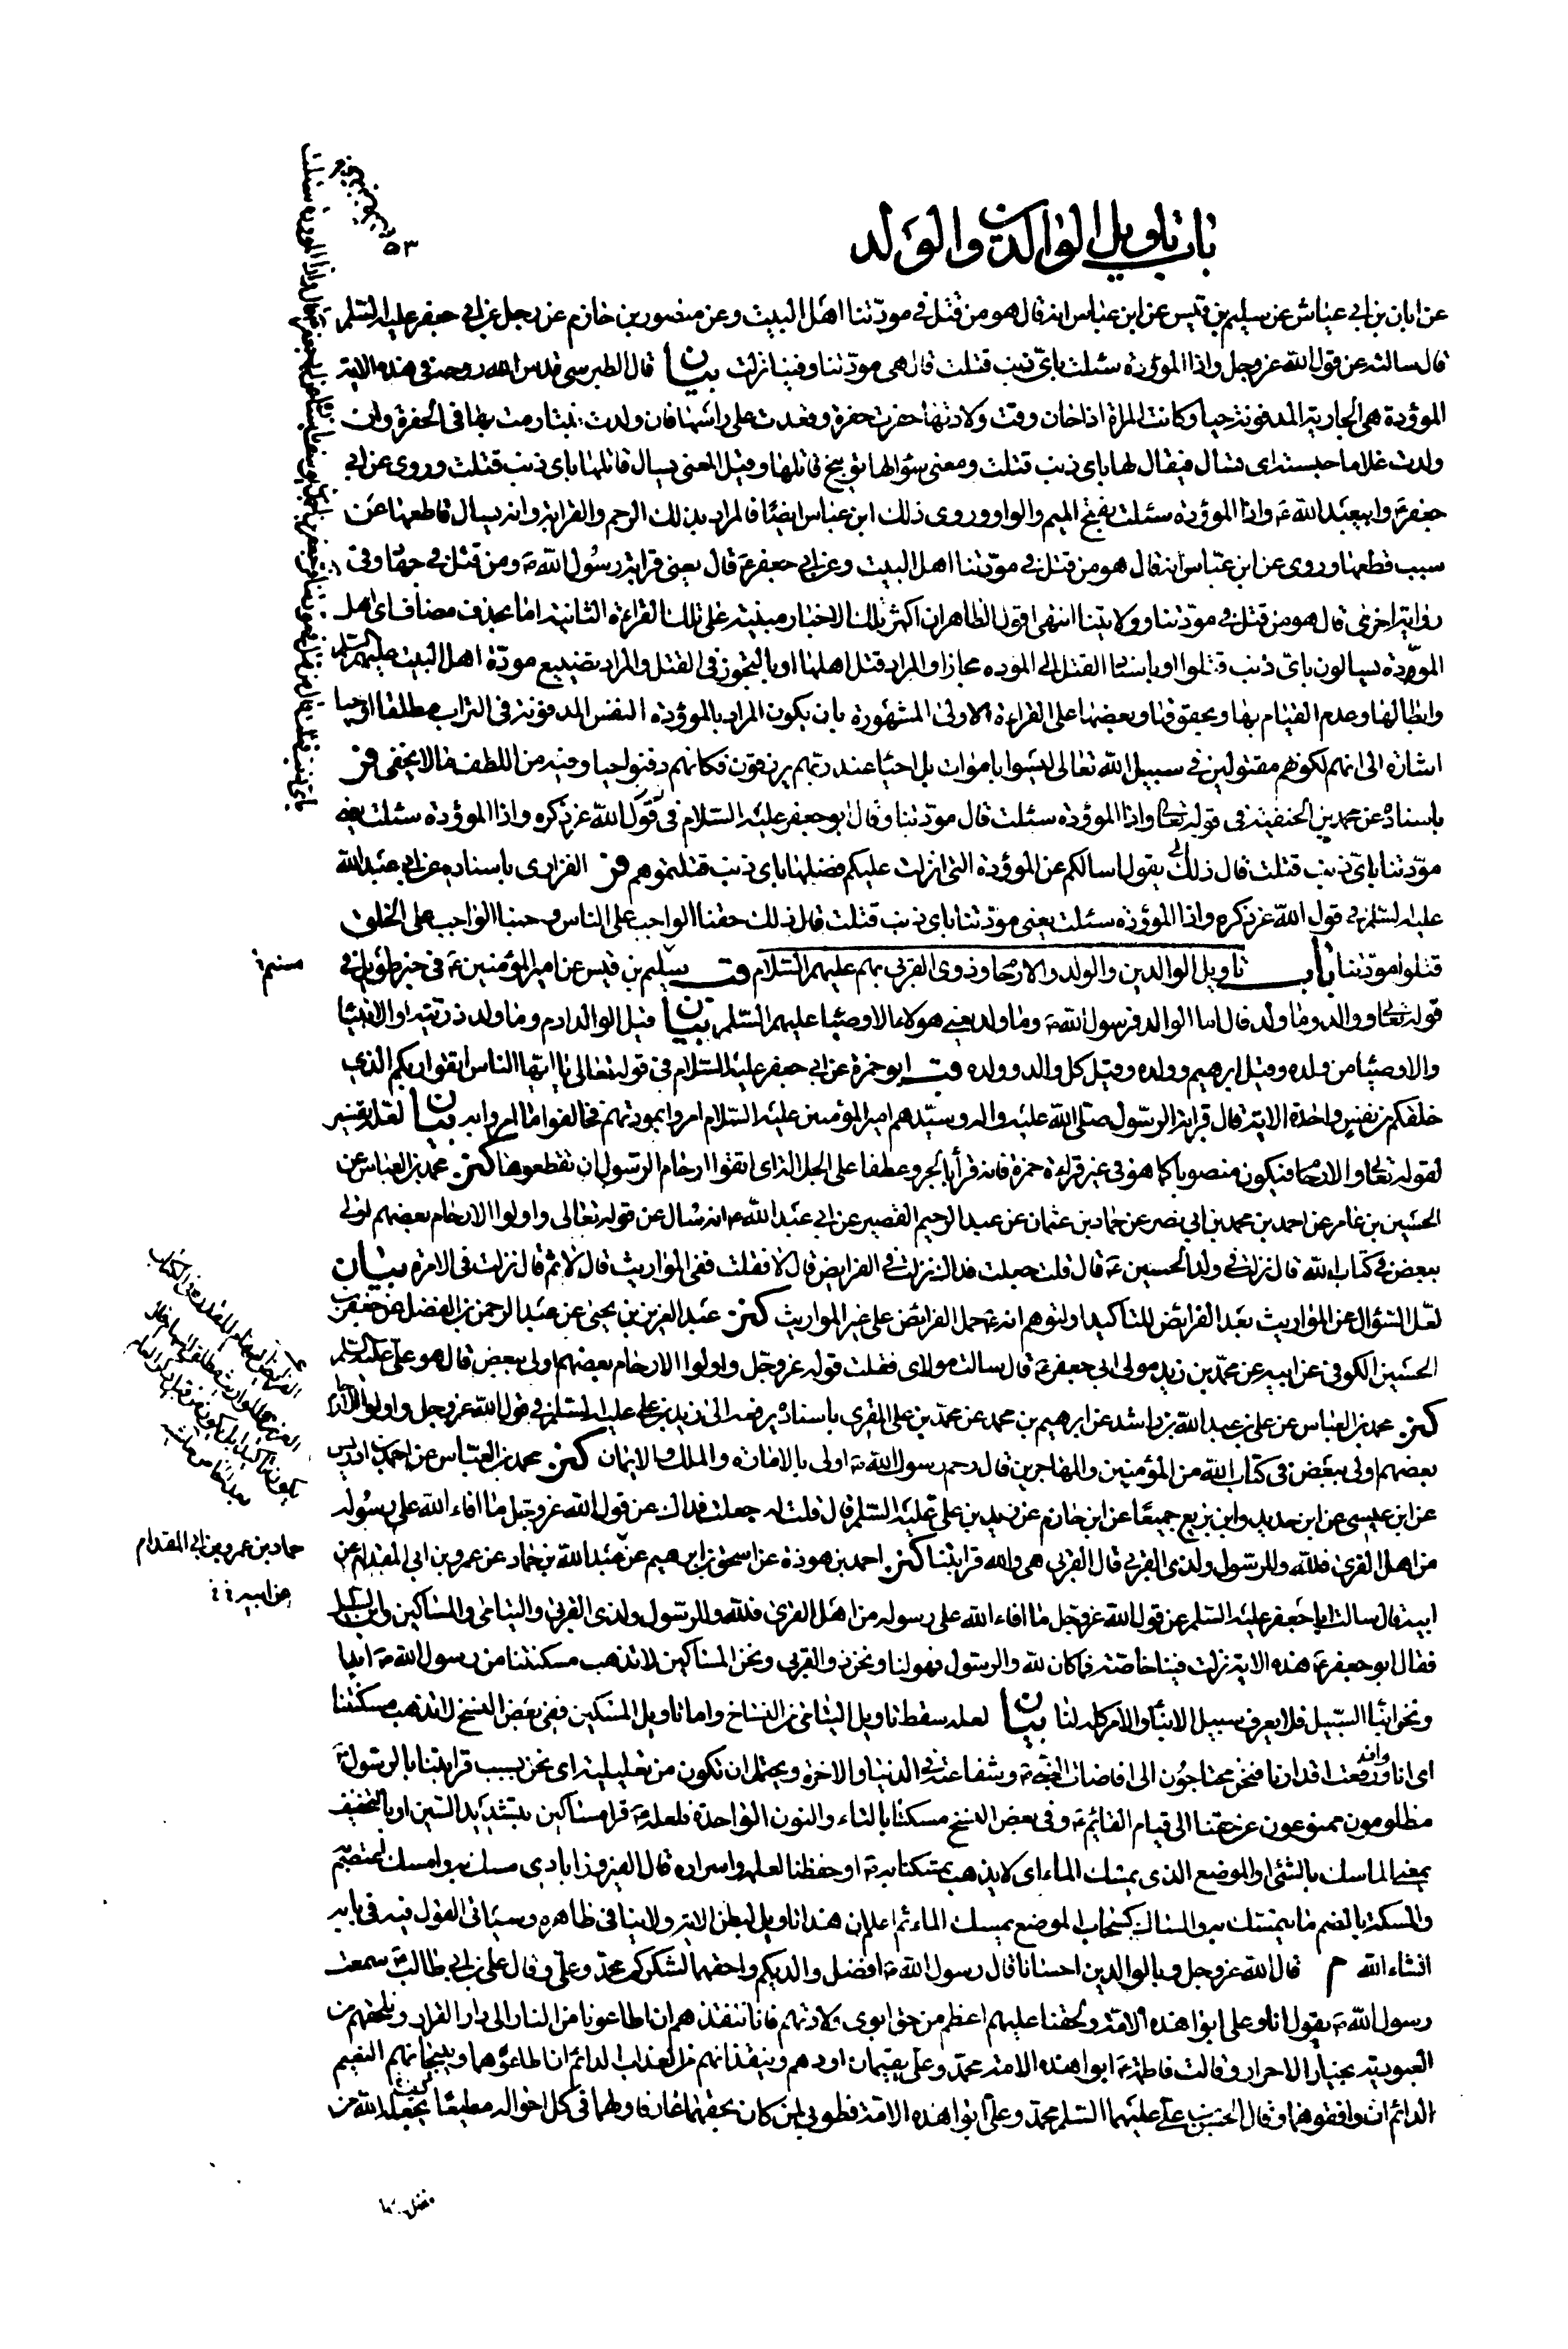 باب تاويل الوالدين والولد
٥٣
عن ابان بن ابي عياش عن سليم بن قيس عن ابن عباس انه قال هو من قتل في مودّتنا اهل البيت وعن منصور بن حازم عن رجل عن ابي جعفر عليه السّلم
قال سالته عن قول الله عز وجل واذا الموؤدة سئلت بايّ ذنب قتلت قال هي مودّتنا وفينا نزلت بيان قال الطبرسي قدس الله روحه في هذه الاية
الموؤدة هي الجارية المدفونة حيا وكانت المراة اذا حان وقت ولادتها حفرت حفرة وقعدت على راسها فان ولدت بنتا رمت بها في الحفرة وان
ولدت غلاما حبسته اي تسال فيقال لها باي ذنب قتلت ومعنى سؤالها توبيخ قاتلها وقيل المعنى يسال قاتلها باي ذنب قتلت وروي عن ابي
جعفر ع وابيعبد الله ع واذا الموؤدة سئلت بفتح الميم والواو وروى ذلك ابن عباس ايضًا فالمراد بذلك الرحم والقرابة وانه يسال قاطعها عن
سبب قطعها وروي عن ابن عبّاس انه قال هو من قتل في مودّتنا اهل البيت وعن ابي جعفر ع قال يعني قرابة رسول الله ص ومن قتل في جهاد وفي
رواية اخرى قال هو من قتل في مودّتنا وولايتنا انتهى اقول الظاهر ان اكثر تلك الاخبار مبنية على تلك القراءة الثانية اما بحذف مضاف اي اهل
الموّدة يسالون بايّ ذنب قتلوا او باسناد القتل الى المودة مجازا والمراد قتل اهلها او بالتجوز في القتل والمراد تضييع مودّة اهل البيت عليهم السّلم
وابطالها وعدم القيام بها وبحقوقها وبعضها على القراءة الاولى المشهورة بان يكون المراد بالموؤدة النفس المدفونة في التراب مطلقا او حيا
اشارة الى انهم لكونهم مقتولين في سبيل الله تعالى ليسوا باموات بل احياء عند ربّهم يرزقون فكانهم دفنوا حيا وفيه من اللطف ما لا يخفى فر
باسناده عن محمد بن الحنفية في قوله تعالى واذا الموؤدة سئلت قال مودّتنا وقال ابو جعفر عليه السّلام في قول الله عز ذكره واذا الموؤدة سئلت يعني
مودّتنا بايّ ذنب قتلت قال ذلك يقول اسالكم عن الموؤدة التي انزلت عليكم فضلها باي ذنب قتلتموهم فر الفزاري باسناده عن ابي عبد الله
عليه السّلم في قول الله عز ذكره واذا الموؤدة سئلت يعني مودّتنا باي ذنب قتلت قال ذلك حقنا الواجب على الناس وحبنا الواجب على الخلق
قتلوا مودّتنا باب تاويل الوالدين والولد والارحام وذوي القربى بهم عليهم السّلام قب سليم بن قيس عن امير المؤمنين ع في خبر طويل في
قوله تعالى ووالد وما ولد قال اما الوالد فرسول الله ص وما ولد يعني هؤلاء الاوصياء عليهم السّلم بيان قيل الوالد ادم وما ولد ذريته او الانبياء
والاوصياء من ولده وقيل ابرهيم وولده وقيل كل والد وولده قب ابو حمزة عن ابي جعفر عليه السّلام في قوله تعالى يا ايها الناس اتقوا ربكم الذي
خلقكم من نفس واحدة الاية قال قرابة الرسول صلى الله عليه واله وسيّدهم امير المؤمنين عليه السّلام امروا بمودتهم فخالفوا ما امروا به بيان لعله تفسير
لقوله تعالى والارحام فيكون منصوبا كما هو في غير قراءة حمزة فانه قرأ بالجر وعطفا على الجلالة اي اتقوا ارحام الرسول ان تقطعوها كنز محمد بن العباس عن
الحسين بن عامر عن احمد بن محمد بن ابي نصر عن حماد بن عثمان عن عبد الرحيم القصير عن ابي عبد الله ع انه سال عن قوله تعالى واولوا الارحام بعضهم اولى
ببعض في كتاب الله قال نزلت في ولد الحسين ع قال قلت جعلت فداك نزلت في الفرايض قال لا فقلت ففي المواريث قال لا ثم قال نزلت في الامرة بيان
لعّل السّؤال عن المواريث بعد الفرايض للتاكيد او لتوهم انه ع حمل الفرائض على غير المواريث كنز عبد العزيز بن يحيى عن عبد الرحمن بن الفضل عن جعفر بن
الحسين الكوفي عن ابيه عن محمّد بن زيد مولى ابي جعفر ع قال سالت مولاي فقلت قوله عز وجّل واولوا الارحام بعضهم اولى ببعض قال هو علي عليه السّلم
كنز محمد بن العباس عن علي بن عبد الله بن راشد عن ابرهيم بن محمد عن محمّد بن علي المقري باسناده يرفعه الى زيد بن علي عليه السّلم في قول الله عز وجل واولوا الارحام
بعضهم اولى ببعض في كتاب الله من المؤمنين والمهاجرين قال رحم رسول الله ص اولى بالامارة والملك والايمان كنز محمد بن العبّاس عن احمد بن ادريس
عن ابن عيسى عن ابن حديد وابن بزيع جميعًا عن ابن حازم عن زيد بن علي عليه السّلم قال قلت له جعلت فداك عن قول الله عز وجّل ما افاء الله على رسُوله
من اهل القرى فللّه وللرسول ولذي القربى قال القربى هي والله قرابتنا كنز احمد بن هوذة عن اسحق بن ابرهيم عن عبد الله بن حماد عن عمرو بن ابي المقدام عن
ابيه قال سالت ابا جعفر عليه السّلم عن قول الله عز وجّل ما افاء الله على رسوله من اهل القرى فللّه وللرسول ولذي القربى واليتامى والمساكين وابن السبيل
فقال ابو جعفر ع هذه الاية نزلت فينا خاصّة فما كان لله والرسول فهو لنا ونحن ذو القربى ونحن المساكين لا تذهب مسكنتنا من رسول الله ص ابدا
ونحن ابناء السّبيل فلا يعرف سبيل الا بنا والامر كله لنا بيان لعله سقط تاويل اليتامى من النساخ واما تاويل المسكين ففي بعض النسخ لا تذهب مسكنتنا
اي انا وان رفعت اقدارنا فنحن محتاجون الى افاضات النبي ص وشفاعته في الدنيا والاخرة ويحتمل ان تكون من تعليلية اي نحن بسبب قرابتنا بالرسول ص
مظلومون ممنوعون عن حقنا الى قيام القائم ع وفي بعض النسخ مسكتنا بالتاء والنون الواحدة فلعله ع قرا مساكين بتشديد السّين او بالتخفيف
بمعنى الماسك بالشئ او الموضع الذي يمسك الماء اي لا يذهب تمسكنا به ص او حفظنا لعلمه واسراره قال الفيروزابادي مسك به وامسك اعتصم
والمسكة بالضم ما يتمسّك به والمساك كسحاب الموضع يمسك الماء ثم اعلم ان هذا تاويل لبطن الاية ولا ينافي ظاهره وسياتي القول فيه في بابه
انشاء الله م قال الله عز وجل وبالوالدين احسانا قال رسول الله ص افضل والديكم واحقهما لشكركم محمّد وعلي وقال علي بن ابي طالب ع سمعت
رسول الله ص يقول انا وعلي ابوا هذه الامّة ولحقنا عليهم اعظم من حق ابوي ولادتهم فانا ننقذهم ان اطاعونا من النار الى دار القرار ونلحقهم من
العبودية بخيار الاحرار وقالت فاطمة ع ابوا هذه الامة محمّد وعلي يقيمان اودهم وينقذانهم من العذاب الدائم ان اطاعوهما ويبيحانهم النعيم
الدائم ان وافقوهما وقال الحسن بن علي عليهما السّلم محمّد وعليّ ابوا هذه الامّة فطوبى لمن كان بحقهما عارفا ولهما في كل احواله مطيعًا يجعله الله من
حماد بن عمرو بن ابي المقدام
عن ابيه